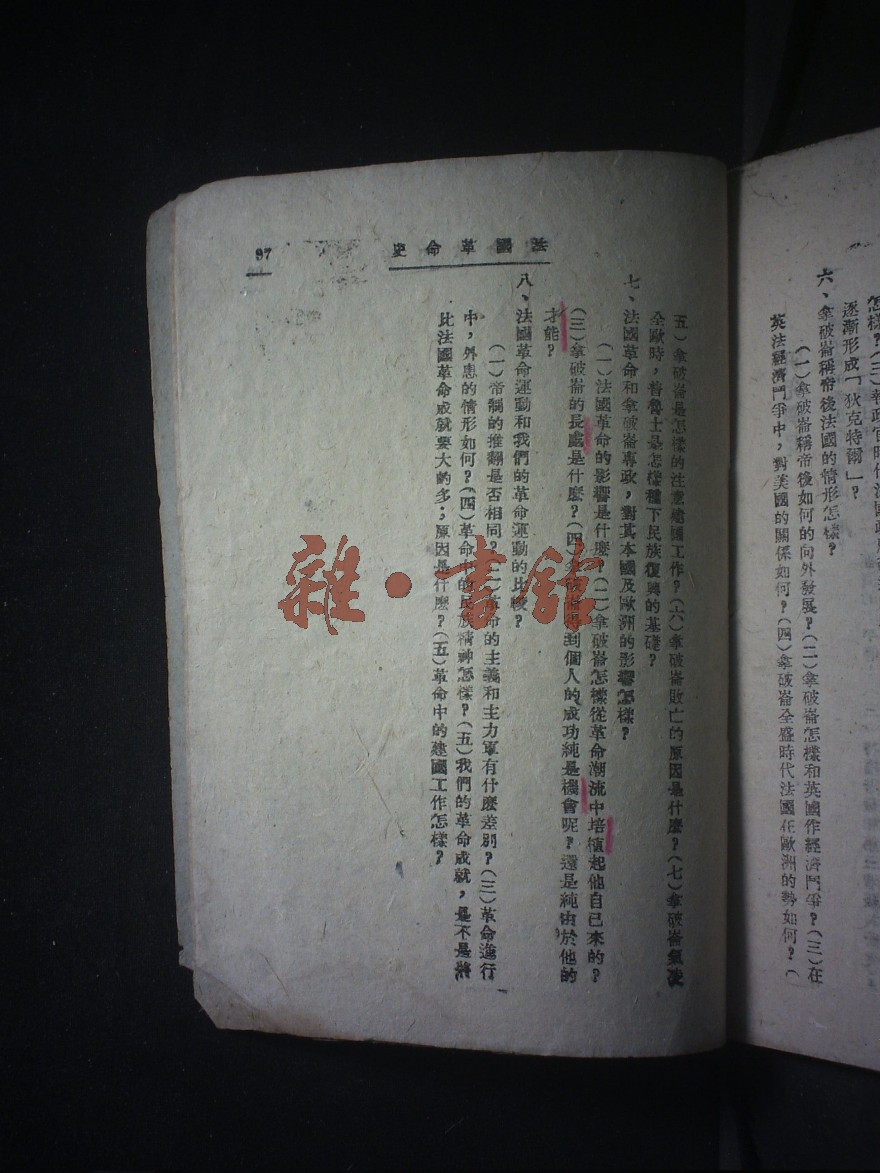 逐漸形成「狄克特爾」？
六、拿破崙稱帝後法國的情形怎樣？
（一）拿破崙稱帝後如何的向外發展？（二）拿破崙怎樣和英國作經濟鬥爭？（三）在
英法經濟鬥爭中，對美國的關係如何？（四）拿破崙全盛時代法國在歐洲的勢如何？（
法國革命史
97
五）拿破崙是怎樣的注意建國工作？（六）拿破崙敗亡的原因是什麼？（七）拿破崙氣凌
全歐時，普魯士是怎樣種下民族復興的基礎？
七、法國革命和拿破崙專政，對其本國及歐洲的影響怎樣？
（一）法國革命的影響是什麼？（二）拿破崙怎樣從革命潮流中培植起他自己來的？
（三）拿破崙的長處是什麼？（四）拿破崙得到個人的成功純是機會呢？還是純由於他的
才能？
八、法國革命運動和我們的革命運動的比較？
（一）帝制的推翻是否相同？（二）革命的主義和主力軍有什麼差別？（三）革命進行
中，外患的情形如何？（四）革命中的民族精神怎樣？（五）我們的革命成就，是不是將
比法國革命成就要大的多；原因是什麼？（五）革命中的建國工作怎樣？
雜·書館